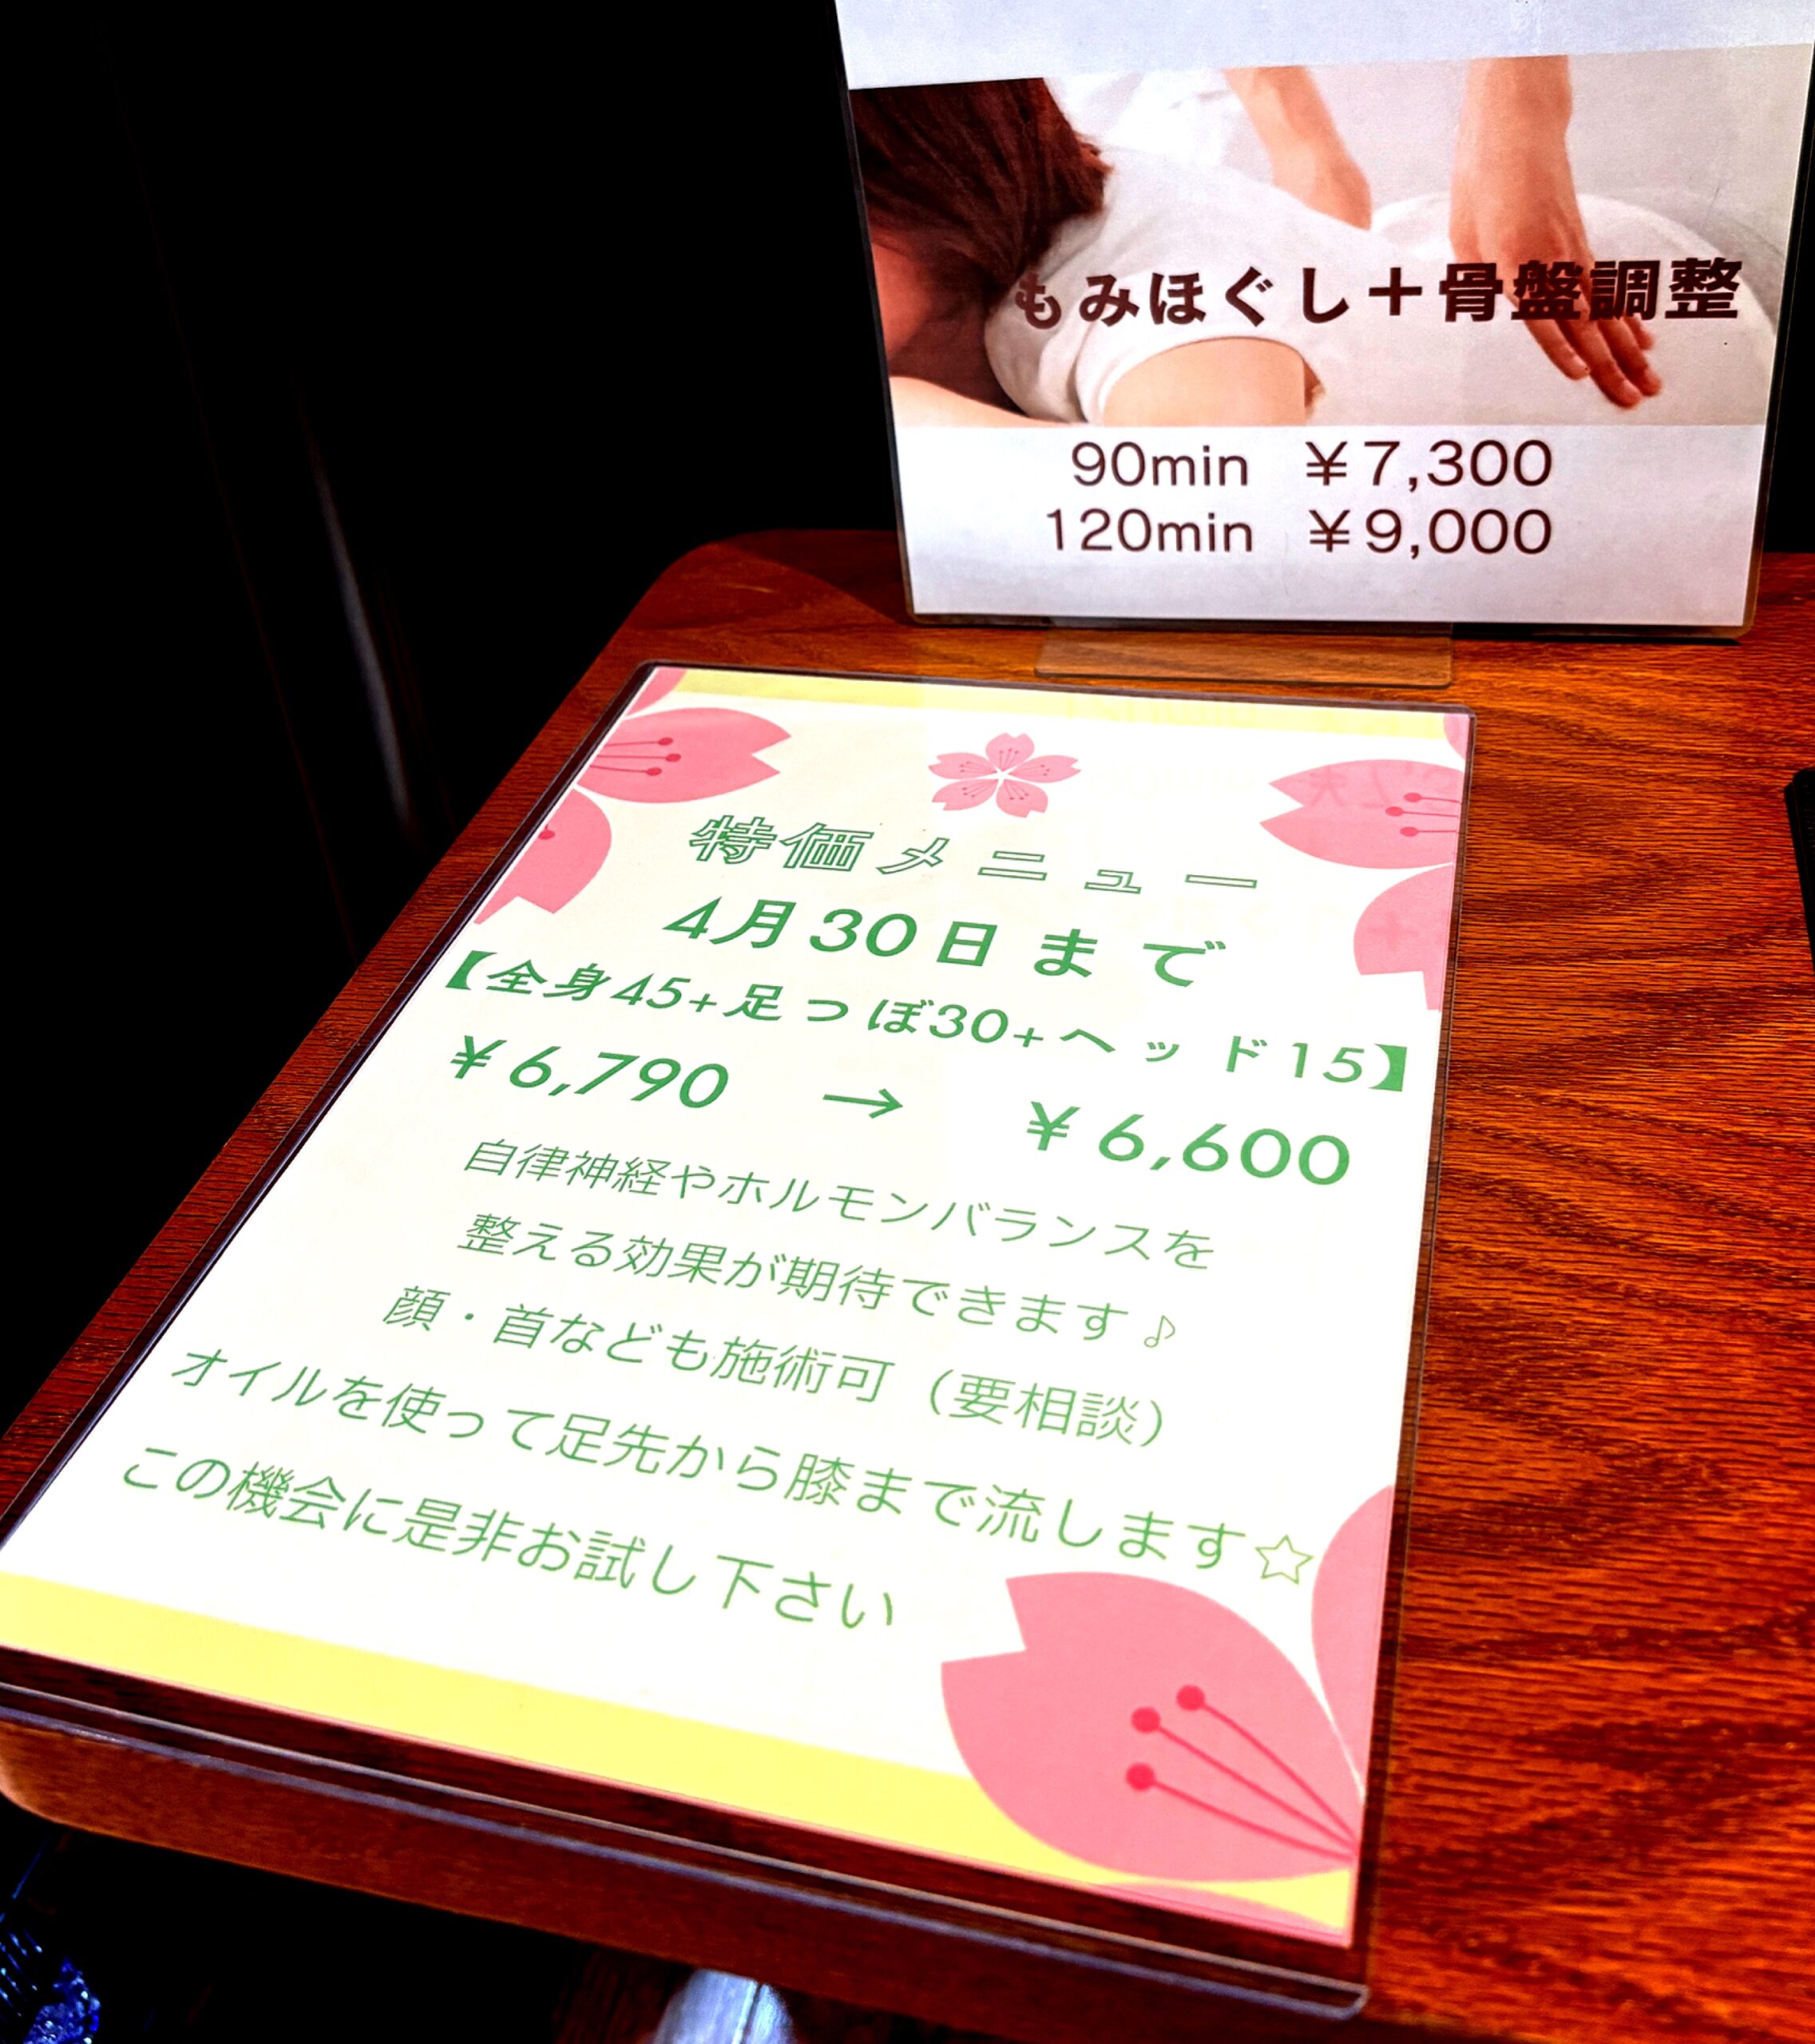 もみほぐし＋骨盤調整
90min ￥7,300
120min ￥9,000
特価メニュー
4月30日まで
【全身45+足つぼ30+ヘッド15】
￥6,790 → ￥6,600
自律神経やホルモンバランスを
整える効果が期待できます♪
顔・首なども施術可（要相談）
オイルを使って足先から膝まで流します☆
この機会に是非お試し下さい